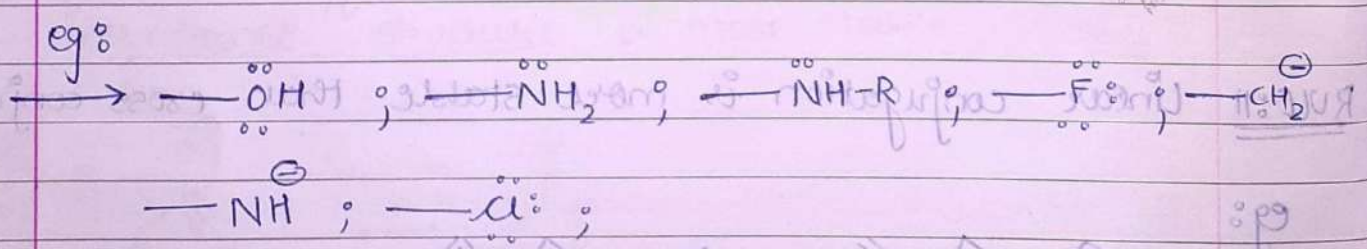 eg:
→ —ÖH ; —N̈H₂ ; —N̈H-R ; —F̈: ; —C̈H₂⊖
—NH⊖ ; —C̈l: ;